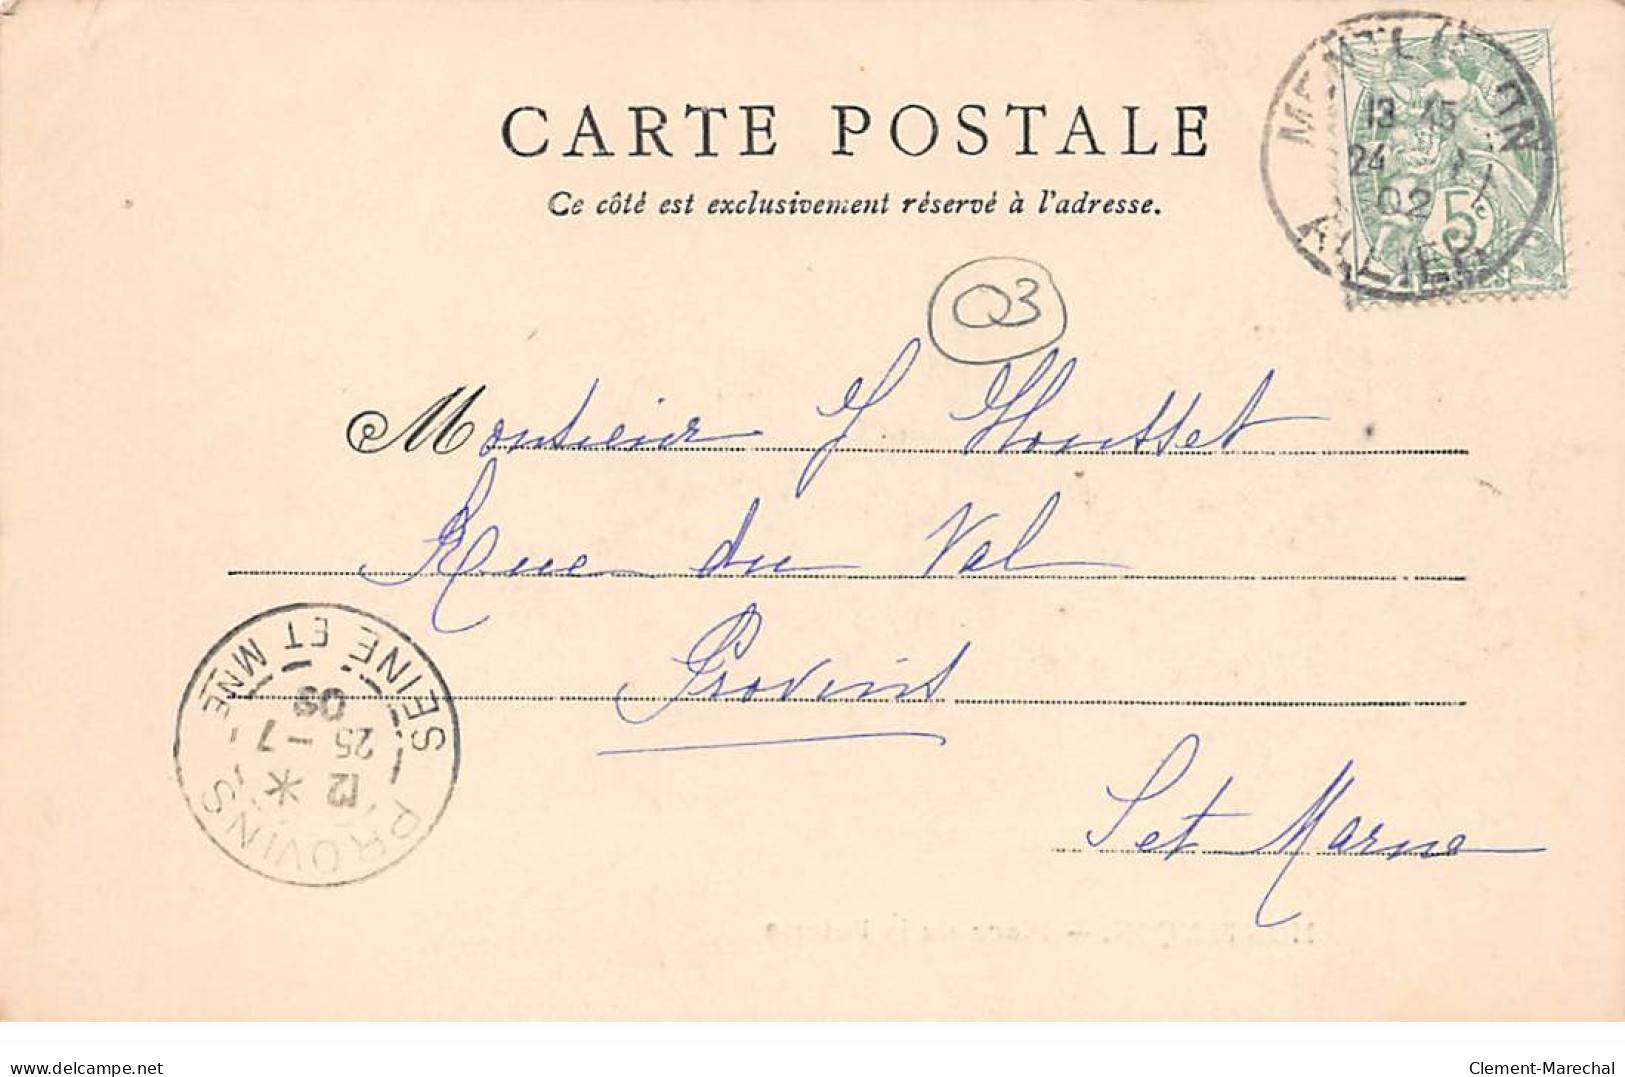 CARTE POSTALE
Ce côté est exclusivement réservé à l'adresse.
13 45
24
02
ALLIER
5c
03
Monsieur J Housset
Rue du Val
Provins
S et Marne
PROVINS
SEINE ET MNE
12 *
25 - 7
03
www.delcampe.net
Clement-Marechal